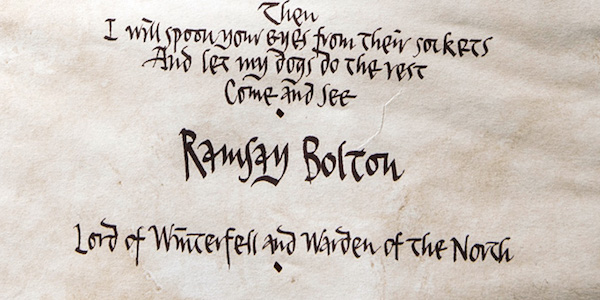 Then
I will spoon your eyes from their sockets
And let my dogs do the rest
Come and see
Ramsay Bolton
Lord of Winterfell and Warden of the North